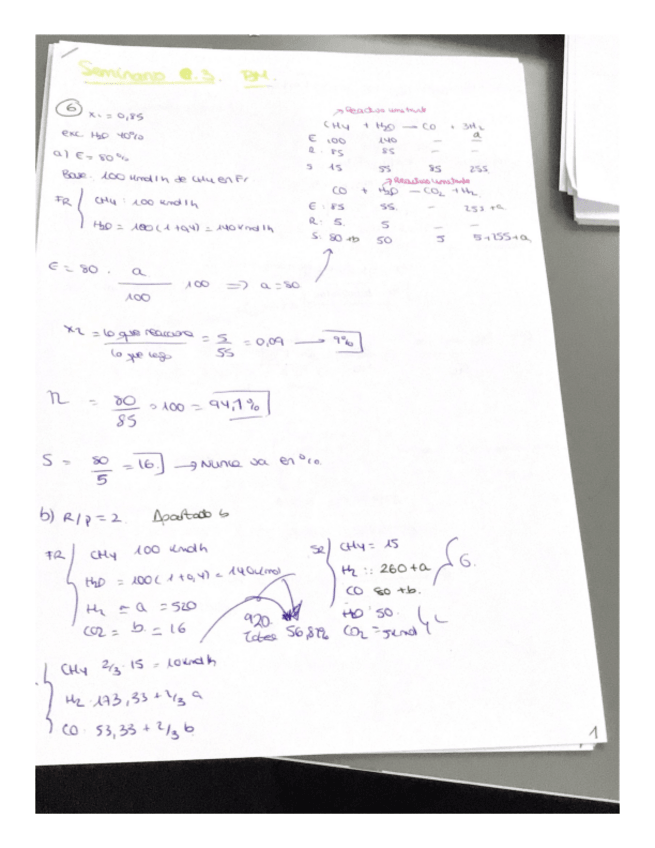 Seminario
6 x₁ = 0,85
exc H₂O 40%
a) ε = 80%
Base: 100 kmol/h de CH₄ en Fr
FR CH₄ : 100 kmol/h
H₂O = 100 (1+0,4) = 140 kmol/h
→ Reactivo limitante
CH₄ + H₂O — CO + 3H₂
E 100 140 — a
R 85 85 — —
S 15 55 85 255
→ Reactivo limitante
CO + H₂O — CO₂ + H₂
E: 85 55 — 255+a
R: 5 5 — —
S: 80+b 50 5 5+255+a
ε = 80 · a / 100 100 => a = 80
x₂ = lo que reacciona / lo que llega = 5/55 = 0,09 → 9%
η = 80/85 · 100 = 94,1%
S = 80/5 = 16 → Nunca va en %.
b) R/P = 2. Apartado b
FR CH₄ 100 kmol/h
H₂O = 100 (1+0,4) = 140 kmol
H₂ = a = 520
CO₂ = b = 16
SR CH₄ = 15
H₂ : 260+a
CO 80+b.
H₂O 50
CO₂ = 5 kmol
G.
L
920
56,81%
CH₄ 2/3 · 15 = 10 kmol/h
H₂ · 173,33 + 2/3 a
CO · 53,33 + 2/3 b
1